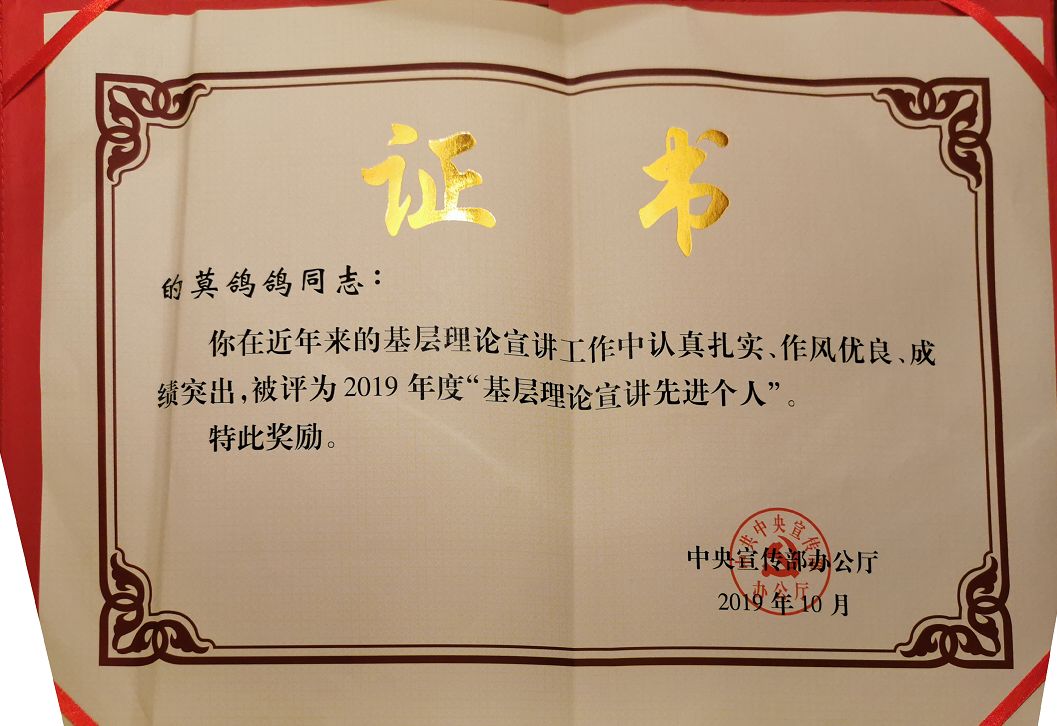 证书
的莫鸽鸽同志：
你在近年来的基层理论宣讲工作中认真扎实、作风优良、成
绩突出，被评为 2019 年度“基层理论宣讲先进个人”。
特此奖励。
中共中央宣传部
办公厅
中央宣传部办公厅
2019 年 10 月